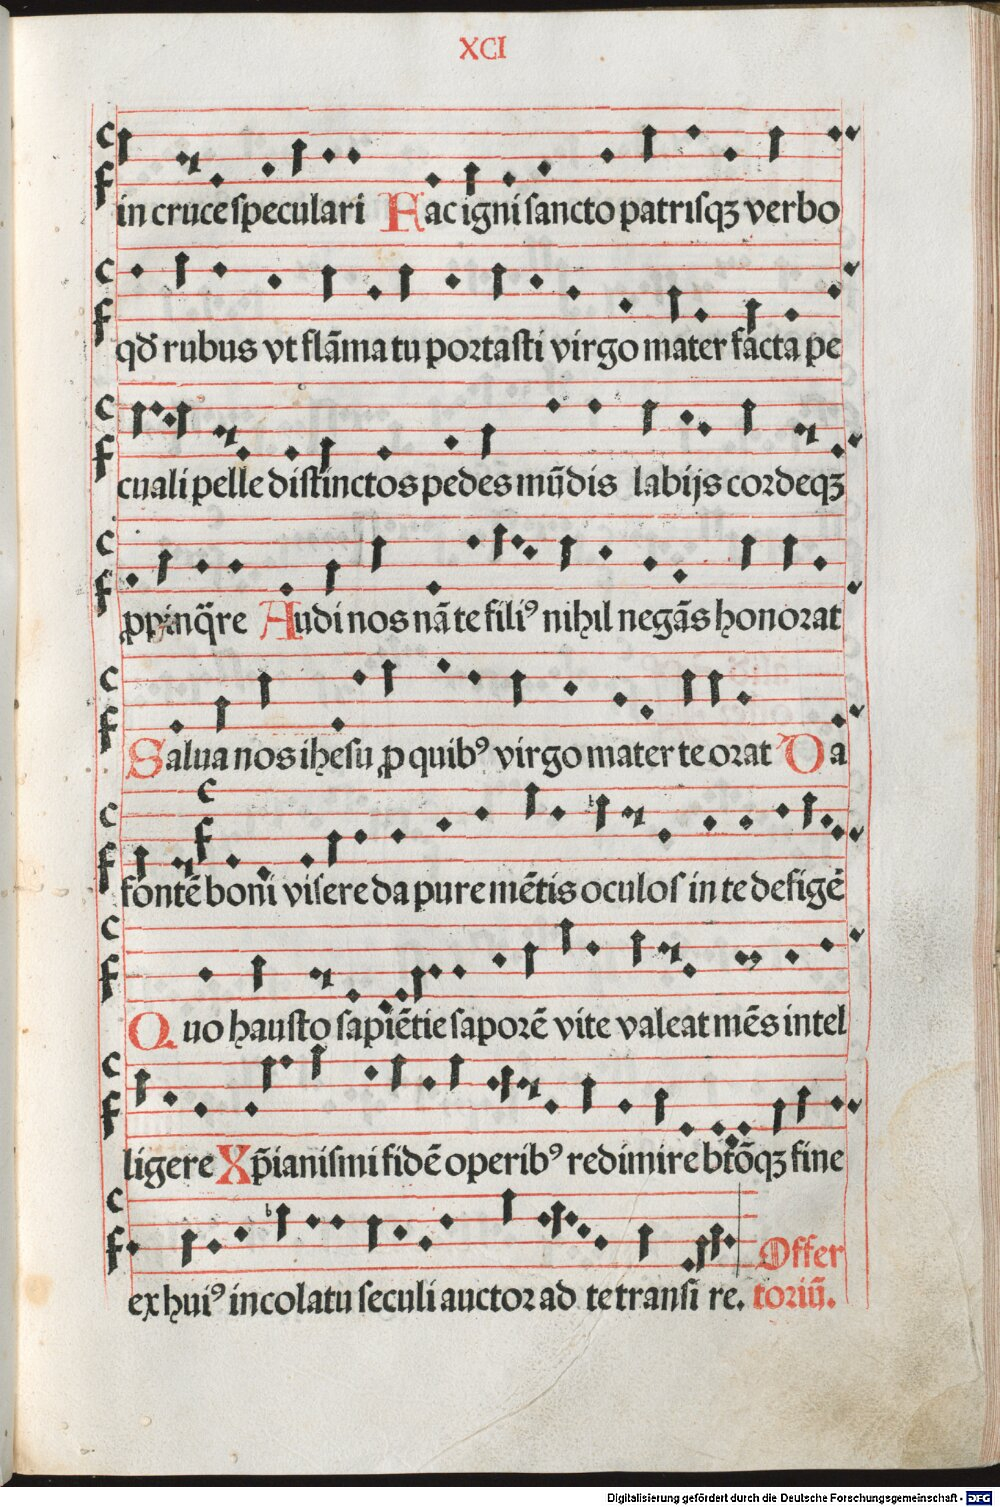 XCI
in cruce speculari Fac igni sancto patrisqꝫ verbo
qđ rubus vt flāma tu portasti virgo mater facta pe
cuali pelle distinctos pedes mūdis labijs cordeqꝫ
ꝓpinq̄re Audi nos nā te filiꝰ nihil negās honorat
Salua nos ihesu ꝓ quibꝰ virgo mater te orat Da
fontē boni visere da pure mētis oculos in te defigē
Quo hausto sapiētie saporē vite valeat mēs intel
ligere Xp̄ianismi fidē operibꝰ redimire btōqꝫ fine
ex huiꝰ incolatu seculi auctor ad te transi re. Offer
toriū.
Digitalisierung gefördert durch die Deutsche Forschungsgemeinschaft - DFG